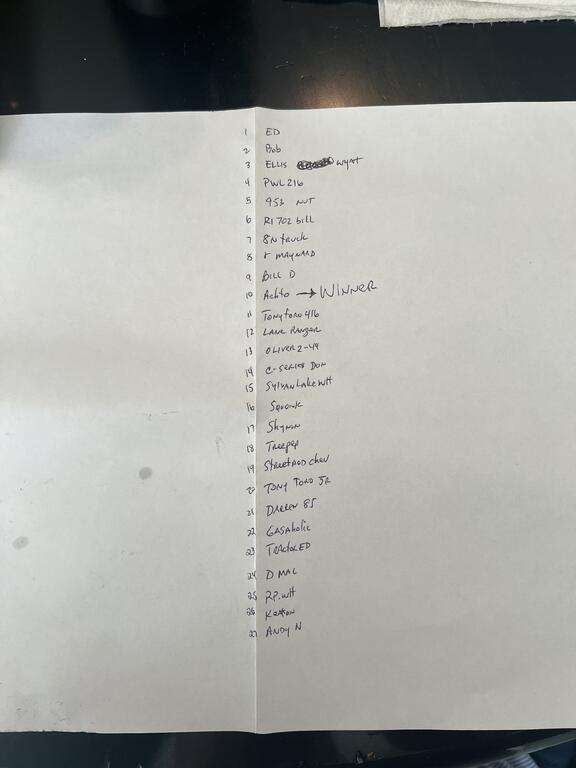 1 ED
2 Bob
3 ELLIS WYAT
4 PWL216
5 953 NUT
6 RJ702 bill
7 8N truck
8 r MAYNARD
9 BILL D
10 Achto → WINNER
11 Tonytoro416
12 LANE RANGER
13 OLIVER2-44
14 C-SERIES DON
15 SylvanLakeWH
16 Squonk
17 Shynon
18 Treepep
19 Streetrod chev
20 TONY TORO JR
21 DARREN 85
22 GASAholic
23 TRACTORED
24 D MAC
25 RP.WH
26
27 ANDY N